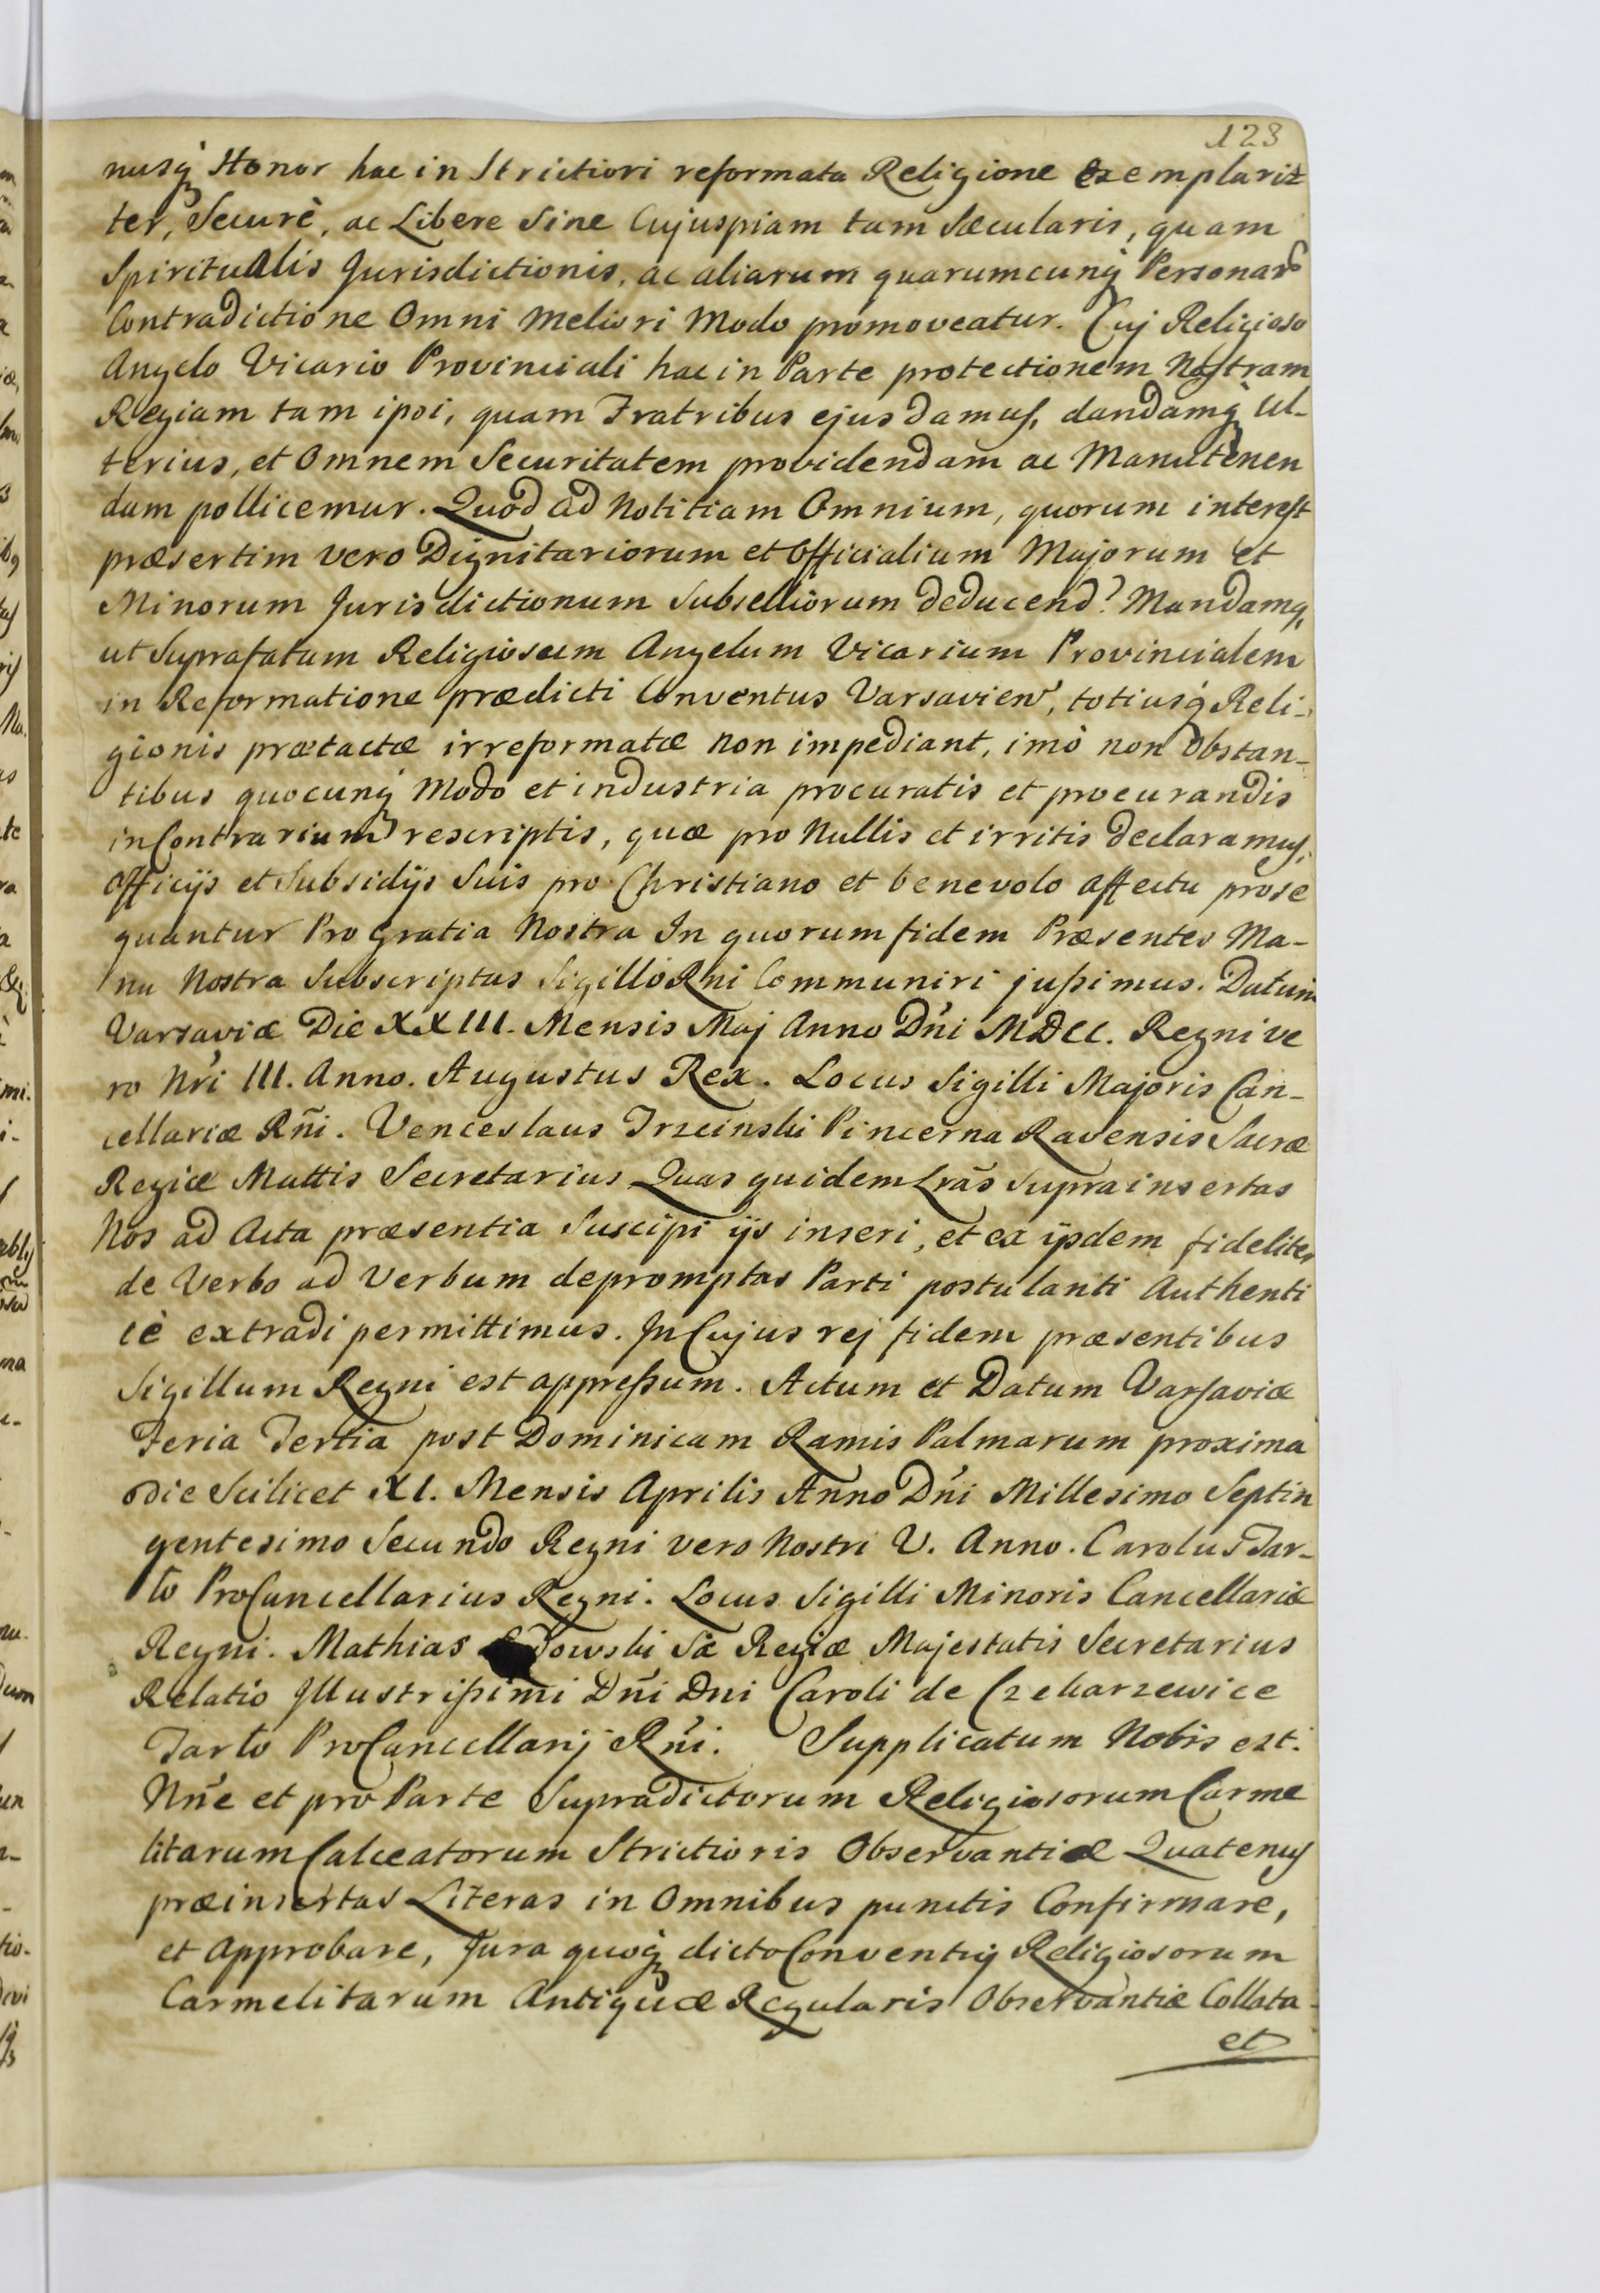 123
nusq Honor hac in Strictiori reformata Religione exemplarit
ter, Securè, ac Libere Sine Cujuspiam tam Sæcularis, quam
Spiritualis Jurisdictionis, ac aliarum quarumcunq Personar
Contradictione Omni Meliori Modo promoveatur. Cuj Religioso
Angelo Vicario Provinciali hac in Parte protectionem Nostram
Regiam tam ipsi, quam Fratribus ejus damus, dandamq Ul-
terius, et Omnem Securitatem providendam ac Manutenen
dam pollicemur. Quod ad Notitiam Omnium, quorum interest
præsertim vero Dignitariorum et Officialium Majorum et
Minorum Jurisdictionum Subselliorum deducend? Mandamq,
ut Suprafatum Religiosum Angelum Vicarium Provincialem
in Reformatione prædicti Conventus Varsavien, totiusq Reli-
gionis prætactæ irreformatæ non impediant, imò non Obstan-
tibus quocunq Modo et industria procuratis et procurandis
in Contrarium rescriptis, quæ pro Nullis et irritis declaramus,
Officijs et Subsidijs Suis pro Christiano et benevolo affectu prose
quantur Pro Gratia Nostra In quorum fidem Præsentes Ma-
nu Nostra Subscriptas Sigillo Rni Communiri jussimus. Datum
Varsaviæ Die XXIII. Mensis Maj Anno Dni MDCC. Regni ve
ro Nri III. Anno. Augustus Rex. Locus Sigilli Majoris Can-
cellariæ Rñi. Venceslaus Trzcinski Pincerna Ravensis Sacræ
Regiæ Mattis Secretarius Quas quidem Lrãs Suprainsertas
Nos ad Acta præsentia Suscipi ijs inseri, et ex ijsdem fideliter
de Verbo ad Verbum depromptas Parti postulanti Authenti
cè extradi permittimus. In Cujus rej fidem præsentibus
Sigillum Regni est appressum. Actum et Datum Varsaviæ
Feria Tertia post Dominicam Ramis Palmarum proxima
die Scilicet XI. Mensis Aprilis Anno Dni Millesimo Septin
gentesimo Secundo Regni vero Nostri V. Anno. Carolus Tar-
ło ProCancellarius Regni. Locus Sigilli Minoris Cancellariæ
Regni. Mathias Sæ Regiæ Majestatis Secretarius
Relatio Illustrissimi Dñi Dni Caroli de Czekarzewice
Tarło ProCancellarij Rni. Supplicatum Nobis est.
Nñe et pro Parte Supradictorum Religiosorum Carme
litarum Calceatorum Strictioris Observantiæ Quatenus
præinsertas Literas in Omnibus punctis Confirmare,
et Approbare, Jura quoq dicto Conventuj Religiosorum
Carmelitarum Antiquæ Regularis Observantiæ Collata
et